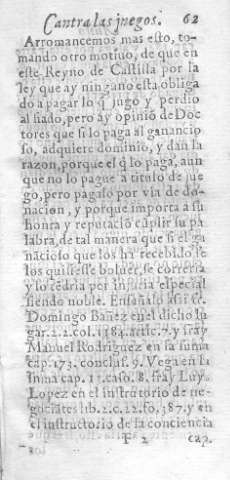 Cantra las juegos. 62
Arromancemos mas esto, to-
mando otro motiuo, de que en
este Reyno de Castilla por la
ley que ay ninguno esta obliga
do a pagar lo q̃ jugò y perdio
al fiado, pero ay opiniõ de Doc
tores que si lo paga al ganancio
so, adquiere dominio, y dan la
razon, porque el q̃ lo paga, aun
que no lo pague a titulo de jue
go, pero pagalo por via de do-
nacion, y porque importa a su
honra y reputaciõ cũplir su pa
labra, de tal manera que si el ga
nacioso que los ha recebido se
los quisiesse boluer, se correria
y lo tēdria por injuria especial
siendo noble. Enseñalo assi fr.
Domingo Bañez en el dicho lu
gar. 2.2. col. 1384. artic. 7. y fray
Manuel Rodriguez en sa suma
cap. 173. conclus. 9. Vega en la
suma cap. 11. caso. 8. fray Luys
Lopez en el instrutorio de ne-
gociātes lib. 2. c. 22. fo, 387. y en
el instructorio de la conciencia
2 cap.